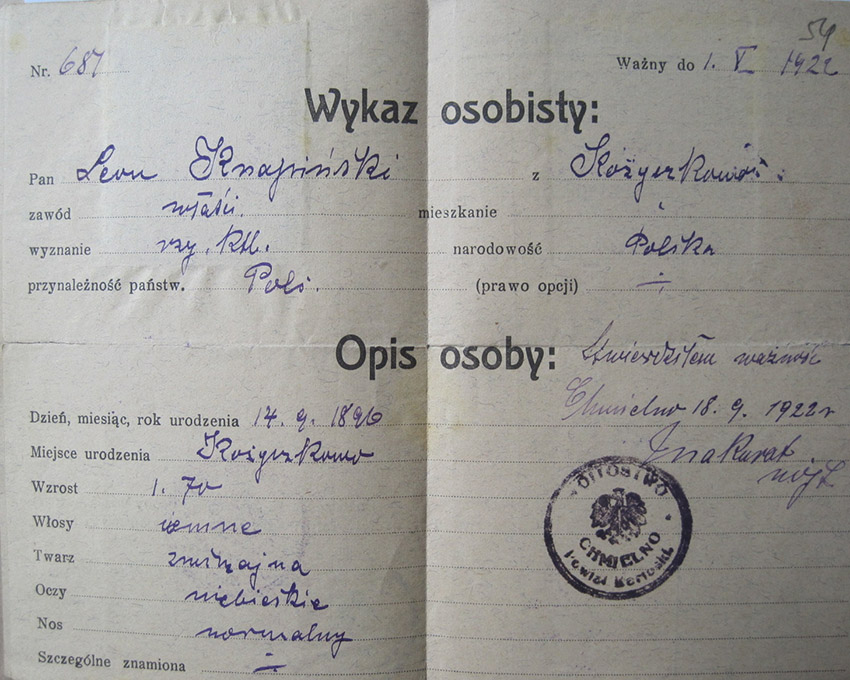 54
Nr. 687 Ważny do 1. V 1922
Wykaz osobisty:
Pan Leon Knapiński z
zawód właści. mieszkanie
wyznanie rzy. ktl. narodowość Polska
przynależność państw. Pols. (prawo opcji) ÷
Opis osoby: Stwierdziłem ważność
Dzień, miesiąc, rok urodzenia 14. 9. 1896 Chmielno 18. 9. 1922 r
Miejsce urodzenia Kożyczkowo
Wzrost 1. 70 wójt
Włosy ciemne
Twarz zwiczajna
Oczy niebieskie
Nos normalny
Szczególne znamiona ÷
WÓJTOSTWO
CHMIELNO
Powiat Kartuski